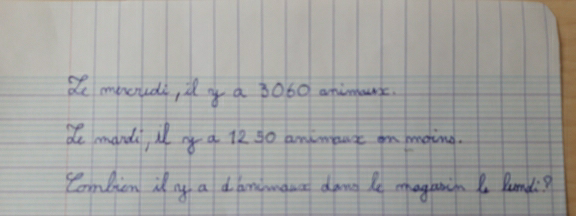 Le mercredi, il y a 3060 animaux.
Le mardi, il y a 1250 animaux en moins.
Combien il y a d'animaux dans le magasin le lundi?